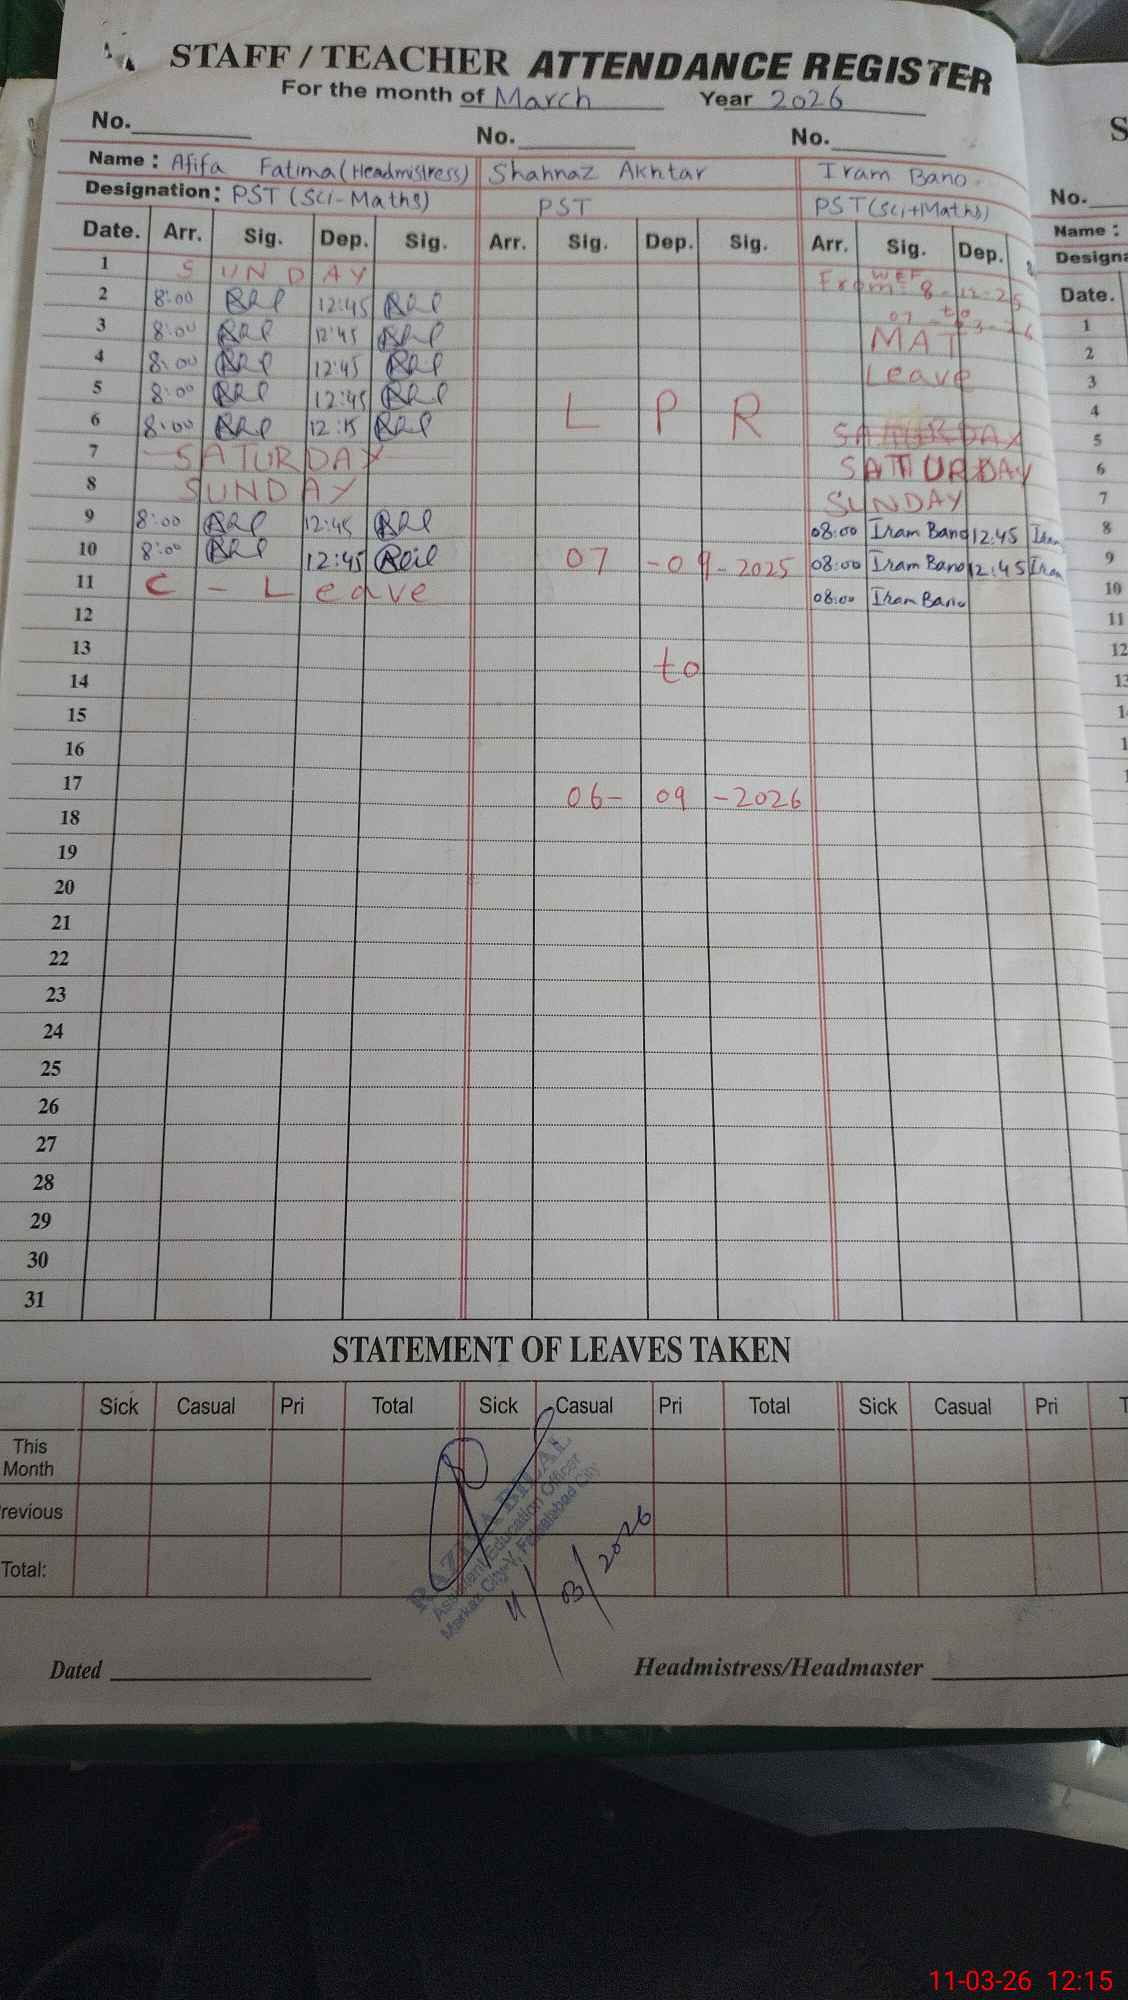 STAFF / TEACHER ATTENDANCE REGISTER
For the month of March Year 2026
No. No. No.
Name : Afifa Fatima (Headmistress) Shahnaz Akhtar Iram Bano
Designation : PST (Sci-Maths) PST PST (Sci+Maths)
Date. Arr. Sig. Dep. Sig. Arr. Sig. Dep. Sig. Arr. Sig. Dep.
1 SUNDAY
WEF
From: 8-12-25
2 8:00 12:45
to
07-03-26
3 8:00 12:45 MAT
4 8:00 12:45 Leave
5 8:00 12:45 L P R
6 8:00 12:15 SATURDAY
7 SATURDAY SATURDAY
8 SUNDAY SUNDAY
9 8:00 12:45 08:00 Iram Bano 12:45 Iram
10 8:00 12:45 07-09-2025 08:00 Iram Bano 12:45 Iram
11 C-Leave 08:00 Iram Bano
12
13 to
14
15
16
17 06-09-2026
18
19
20
21
22
23
24
25
26
27
28
29
30
31
STATEMENT OF LEAVES TAKEN
Sick Casual Pri Total Sick Casual Pri Total Sick Casual Pri T
This Month
revious
Total:
RAZIA BILAL
Assistant Education Officer
Markaz City-V, Faisalabad City
11/03/2026
Dated Headmistress/Headmaster
S
No.
Name :
Designa
Date.
1
2
3
4
5
6
7
8
9
10
11
12
13
1
1
1
11-03-26 12:15